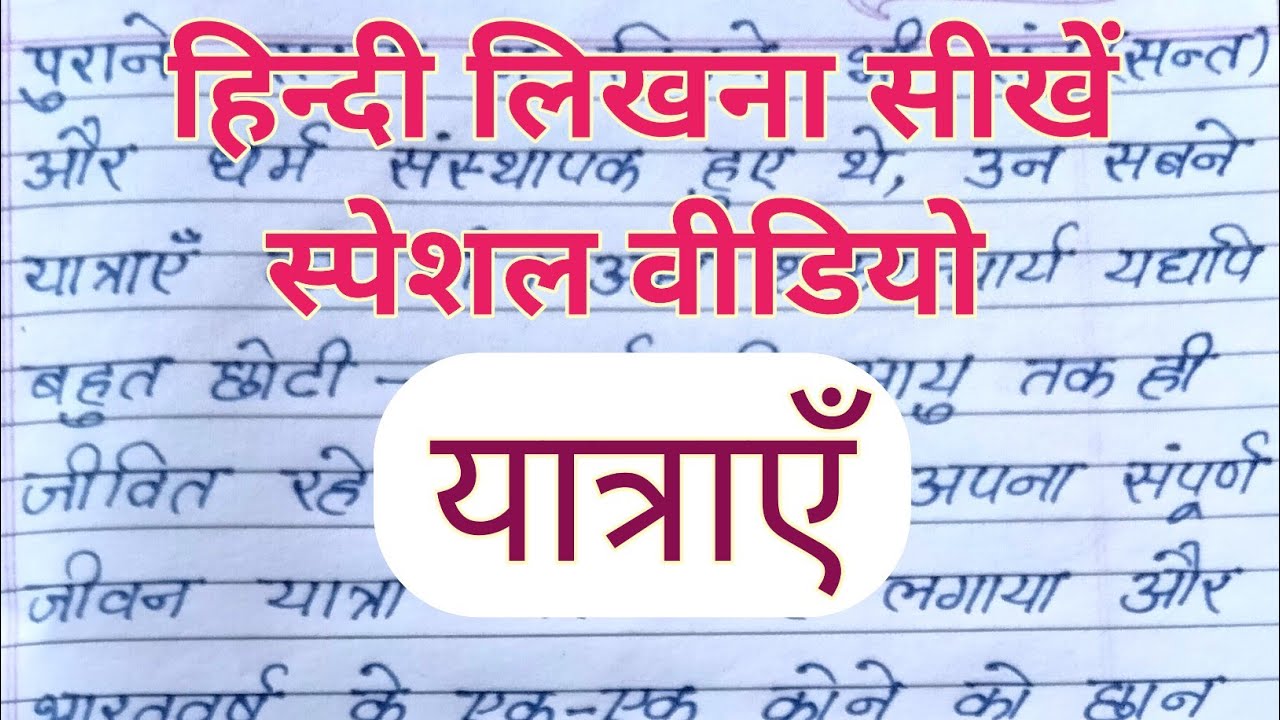 हिन्दी लिखना सीखें
स्पेशल वीडियो
यात्राएँ
पुराने (सन्त)
और धर्म संस्थापक हुए थे, उन सबने
यात्राएँ यद्यपि
बहुत छोटी - तक ही
जीवित रहे अपना संपूर्ण
जीवन यात्रा लगाया और
भारतवर्ष के एक-एक कोने को छान